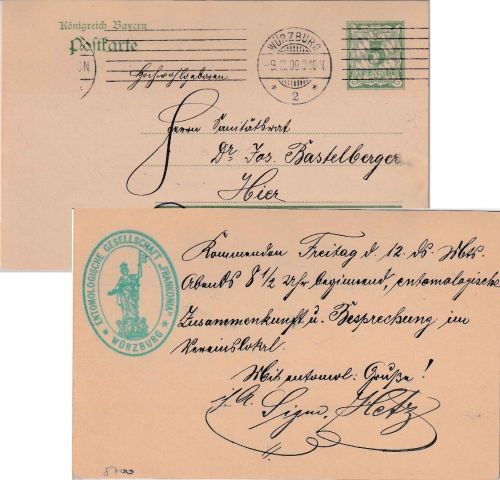 Königreich Bayern
Postkarte
WÜRZBURG
2
5
PFENNIG
Hochwohlgeboren
Herrn Sanitätsrat
Dr. Jos. Bastelberger
Hier
ENTOMOLOGISCHE GESELLSCHAFT „FRANKONIA“
WÜRZBURG
Kommenden Freitag d. 12 ds. Mts.
Abends 8 1/2 Uhr beginnend, entomologische
Zusammenkunft u. Besprechung im
Vereinslokal.
Mit entomol: Gruße!
J. A.
Sigm. Hetz
8700